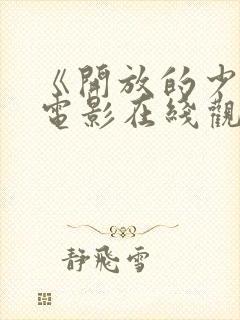 《開放的少
電影在綫觀
静飛雪